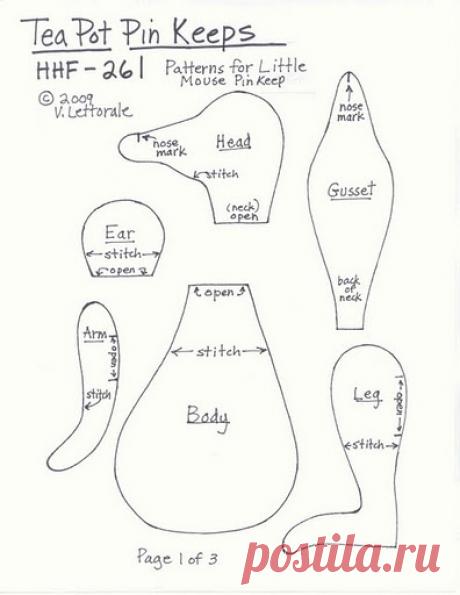 Tea Pot Pin Keeps
HHF-261 Patterns for Little
Mouse Pin Keep
© 2009
V. Lettorale
nose
mark
Head
stitch
(neck)
open
nose
mark
Gusset
back
of
neck
Ear
stitch
open
Arm
open
stitch
open
stitch
Body
Leg
open
stitch
Page 1 of 3
postila.ru